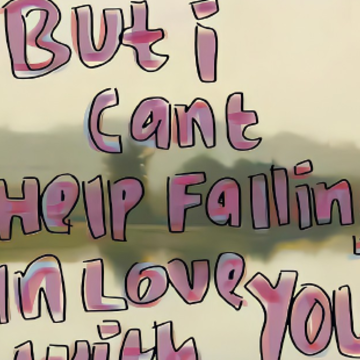 But i
Cant
Help Fallin
In Love
with You